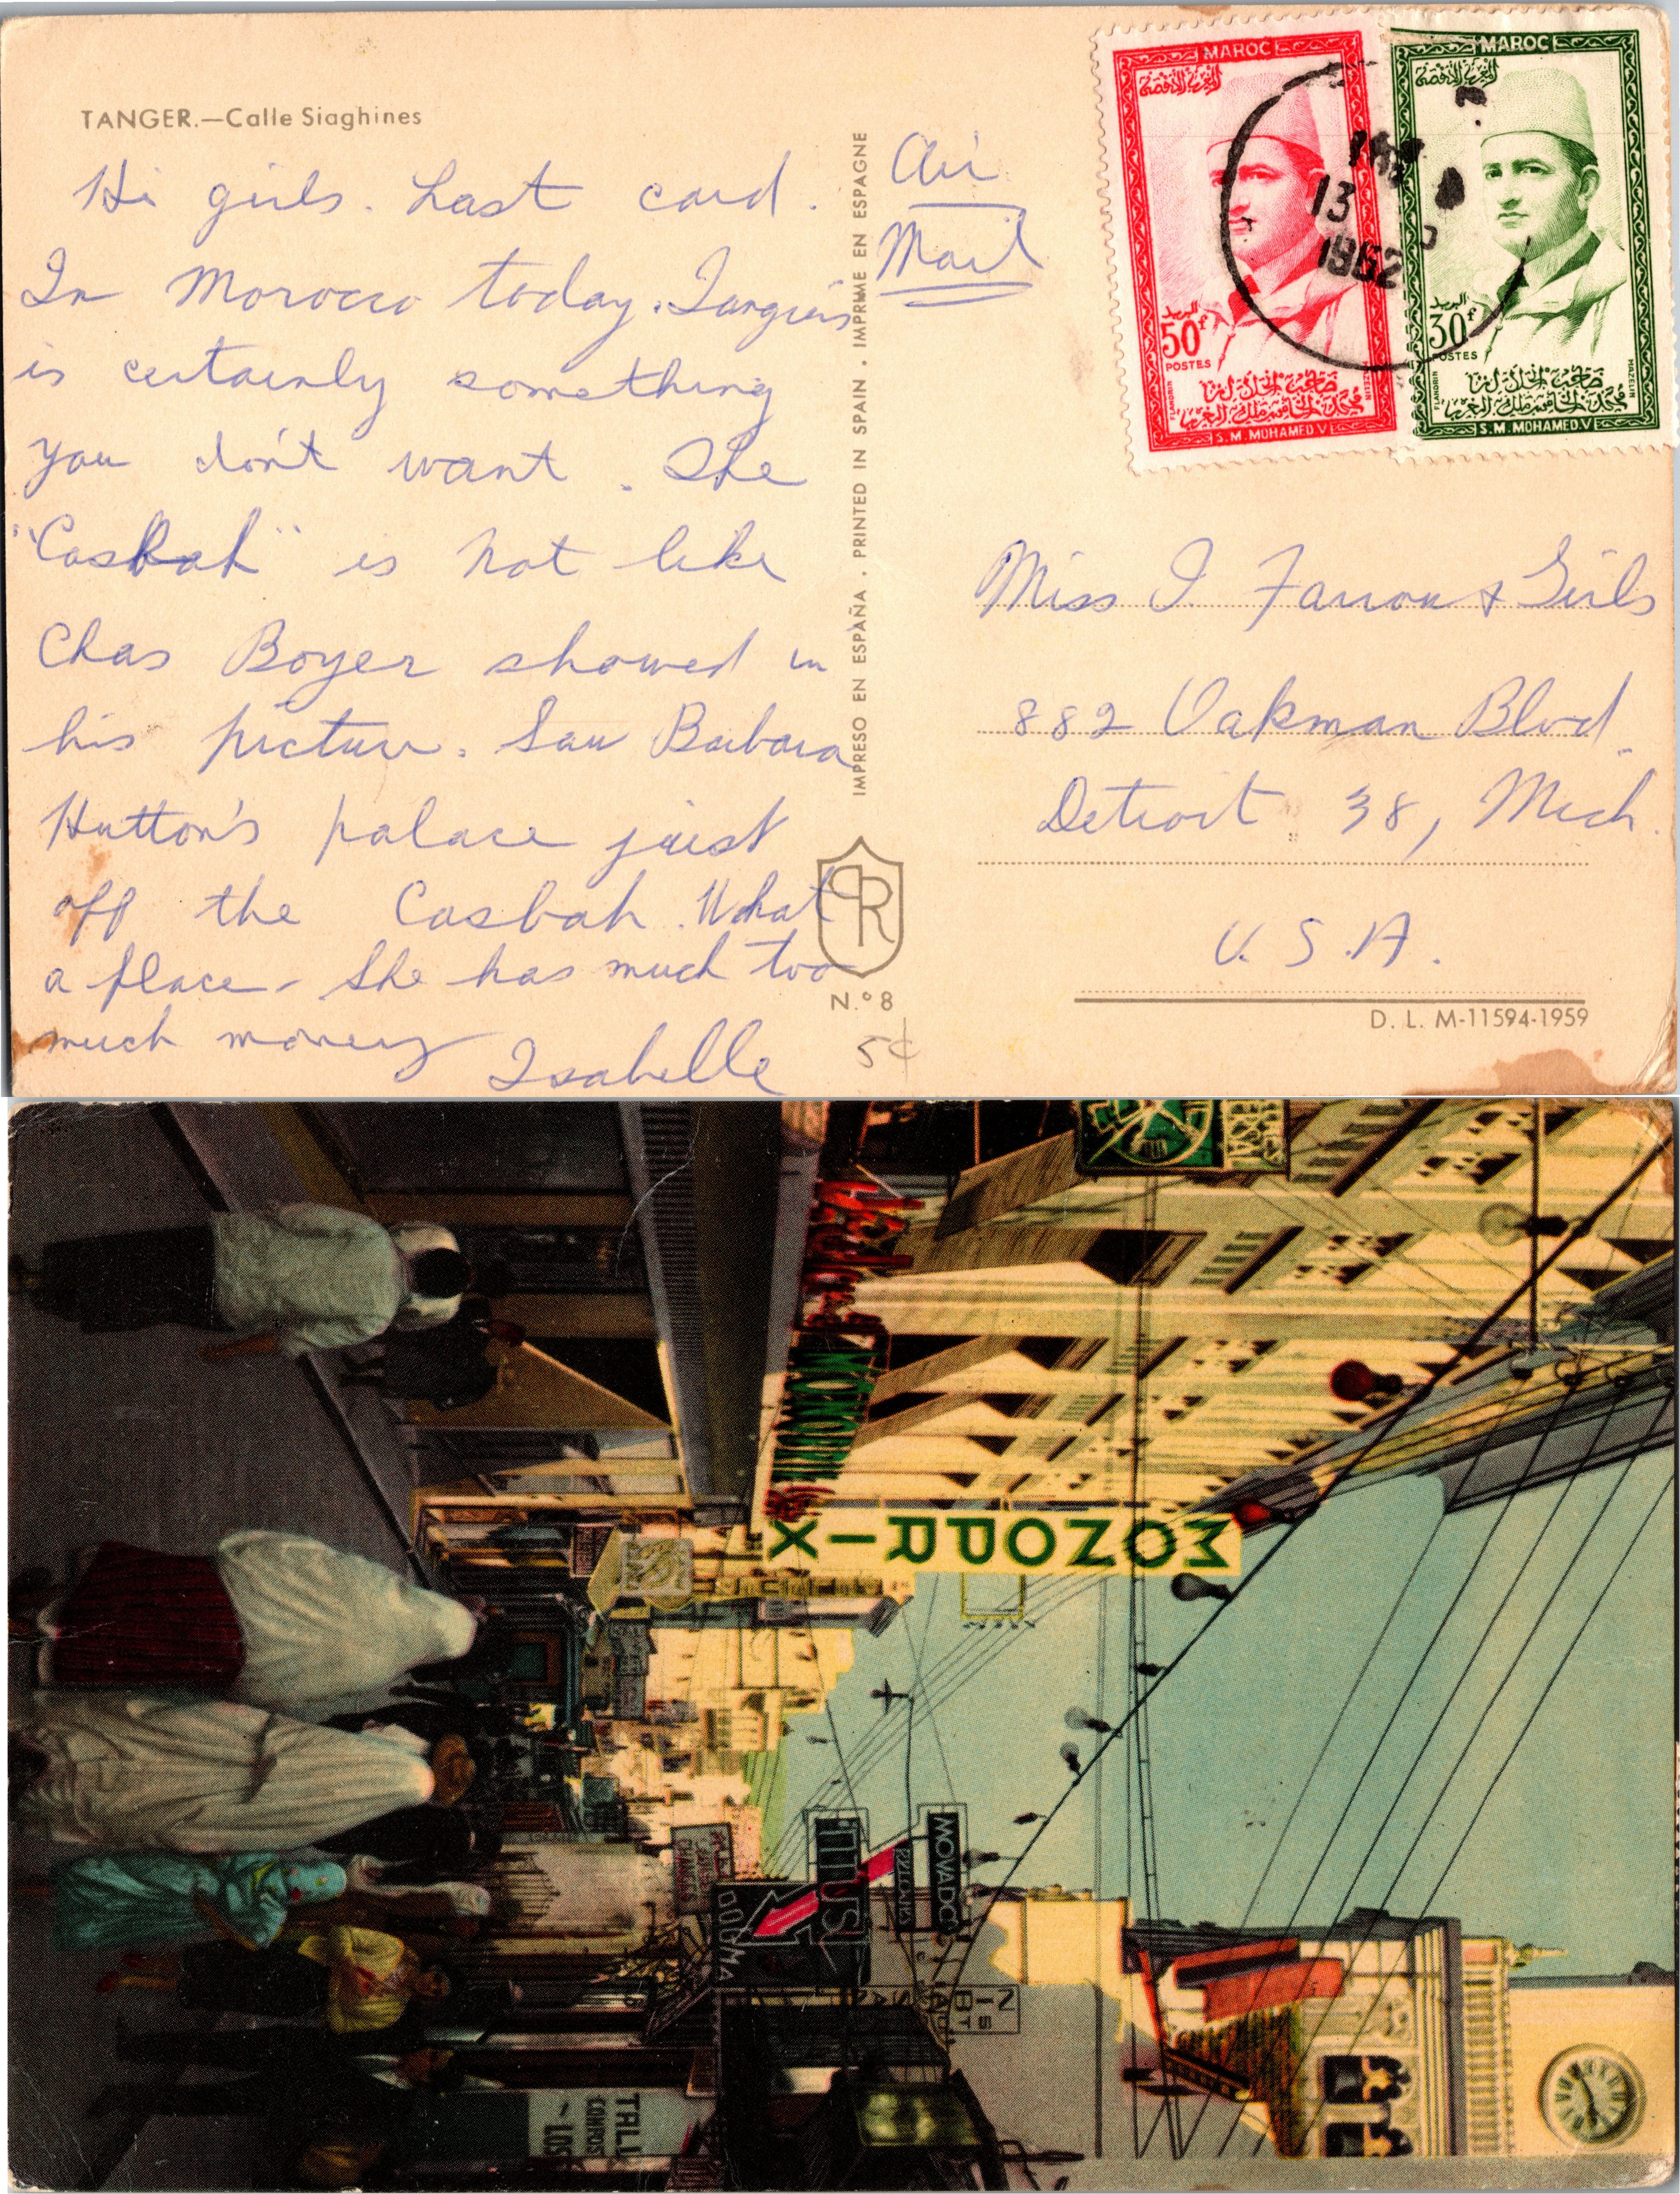 TANGER.—Calle Siaghines
Hi girls. Last card.
In Morocco today. Tangiers
is certainly something
you don't want. The
"Casbah" is not like
Chas Boyer showed in
his picture. Saw Barbara
Hutton's palace just
off the Casbah. What
a place - She has much too
much money
Isabelle
IMPRESO EN ESPAÑA . PRINTED IN SPAIN . IMPRIMÉ EN ESPAGNE
PR
N.º 8
5¢
Air
Mail
MAROC
50f
البريد
POSTES
S.M. MOHAMED.V
MAROC
30f
البريد
POSTES
HAZELIN
S.M. MOHAMED.V
13
1962
Miss I. Farrow & Girls
882 Oakman Blvd.
Detroit 38, Mich.
U.S.A.
D. L. M-11594-1959
MONOPRIX
MOVADO
TITUS
DOUMA
CHANGES
TALL
COMPOS
LOS